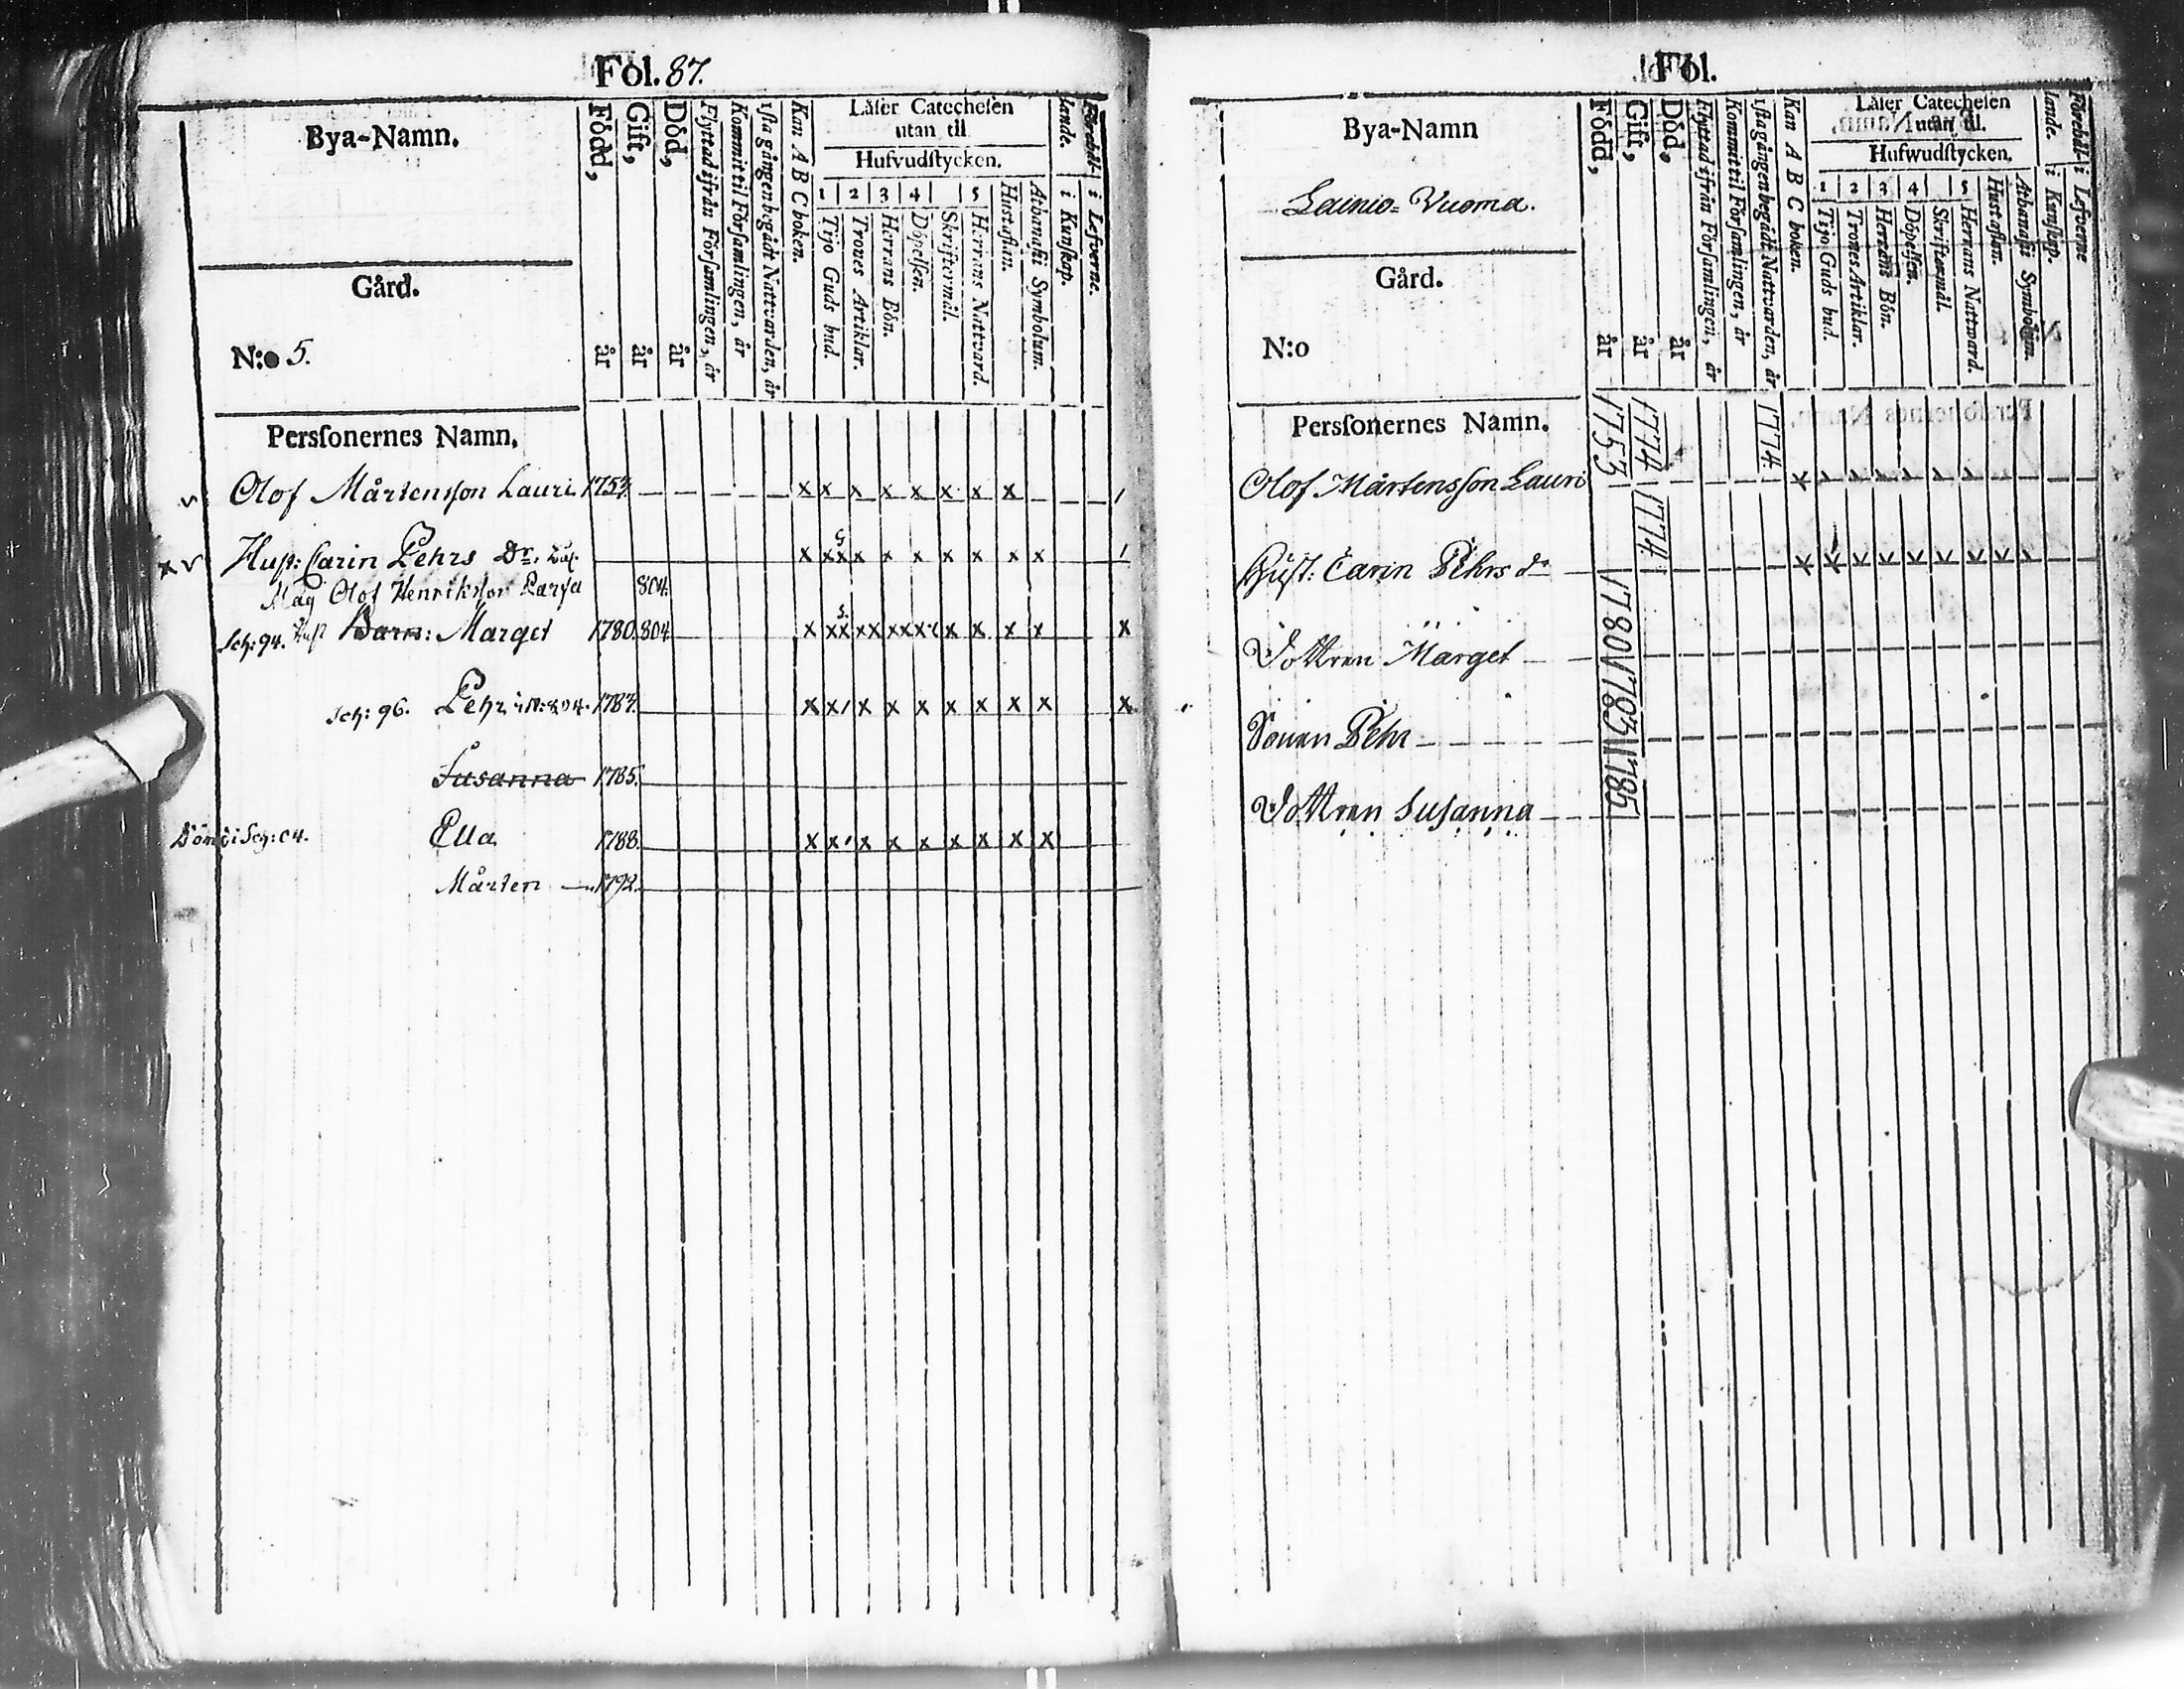 Fol. 87.
Bya-Namn.
Född, år
Gift, år
Död, år
Flyttad ifrån Församlingen, år
Kommit til Församlingen, år
1sta gången begådt Nattvarden, år
Kan A B C boken.
Läser Catechesen
utan til
Hufvudstycken.
1 2 3 4 5
Tijo Guds bud.
Trones Artiklar.
Herrans Bön.
Döpelsen.
Skriftermål.
Herrans Nattvard.
Hustaflan.
Athanasii Symbolum.
Förehållande.
i Kunskap.
i Lefverne.
Gård.
N:o 5.
Personernes Namn.
Olof Mårtensson Lauri 1753. x x x x x x x x
Hust: Carin Pehrs Dr. x x x x x x x x x x
Måg Olof Henriksson 804.
Sch: 94. Hust Barn: Marget 1780. 804 x x x x x x x x x x x x x
Sch: 96. Pehr 1783. x x x x x x x x x x
Susanna 1785.
Sch: 04. Ella 1788. x x x x x x x x x
Mårten 1792.
Fol.
Bya-Namn
Lainio=Vuoma.
Född, år
Gift, år
Död, år
Flyttad ifrån Församlingen, år
Kommit til Församlingen, år
1sta gången begådt Nattvarden, år
Kan A B C boken.
Läser Catechesen
utan til.
Hufwudstycken.
1 2 3 4 5
Tijo Guds bud.
Trones Artiklar.
Herrans Bön.
Döpelsen.
Skriftermål.
Herrans Nattvard.
Hustaflan.
Athanasii Symbolum.
Förehållande.
i Kunskap.
i Lefverne
Gård.
N:o
Personernes Namn.
Olof Mårtensson Lauri 1753 1774 1774
Hust: Carin Pehrs dr 1774
Dottren Marget 1780
Sonen Pehr 1783
Dottren Susanna 1785